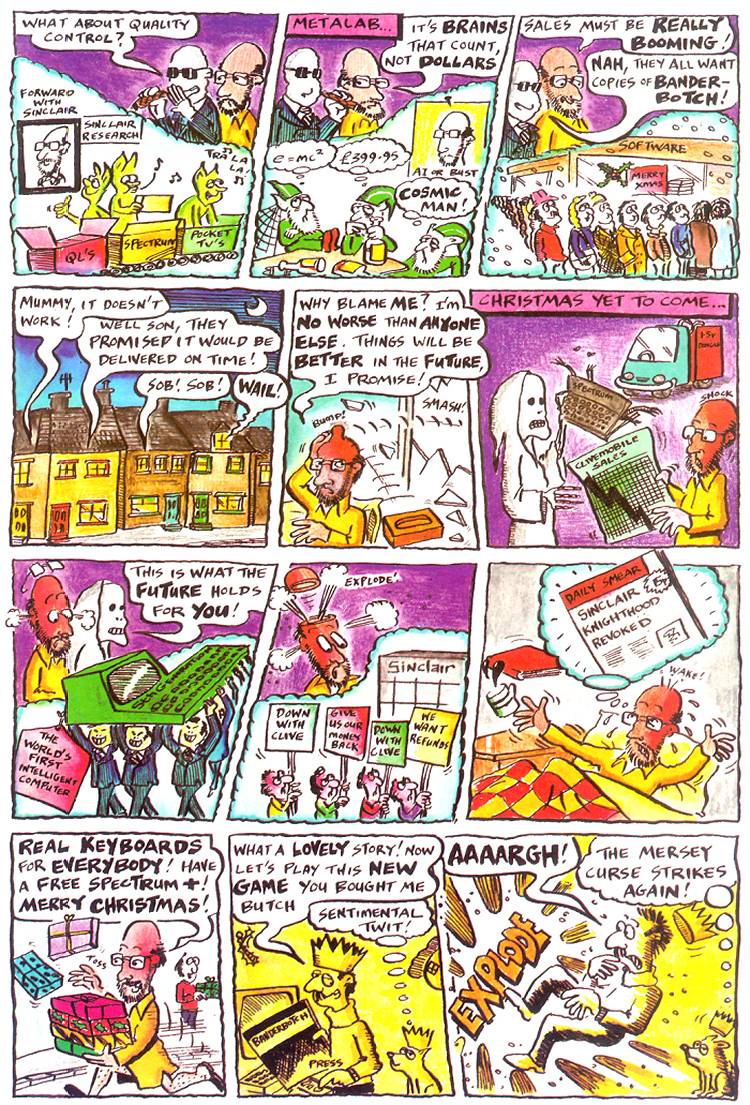 WHAT ABOUT QUALITY
CONTROL?
FORWARD
WITH
SINCLAIR
SINCLAIR
RESEARCH
TRA LA
LA!
QL'S
SPECTRUM
POCKET
TV'S
METALAB...
IT'S BRAINS
THAT COUNT,
NOT DOLLARS
e=mc²
£399.95
AI OR BUST
COSMIC
MAN!
SALES MUST BE REALLY
BOOMING!
NAH, THEY ALL WANT
COPIES OF BANDER-
BOTCH!
SOFTWARE
MERRY
XMAS
MUMMY, IT DOESN'T
WORK!
WELL SON, THEY
PROMISED IT WOULD BE
DELIVERED ON TIME!
SOB! SOB!
WAIL!
WHY BLAME ME? I'M
NO WORSE THAN ANYONE
ELSE. THINGS WILL BE
BETTER IN THE FUTURE,
I PROMISE!
SMASH!
BUMP!
CHRISTMAS YET TO COME...
SPECTRUM
SHOCK
CLIVEMOBILE
SALES
THIS IS WHAT THE
FUTURE HOLDS
FOR YOU!
THE
WORLD'S
FIRST
INTELLIGENT
COMPUTER
EXPLODE!
Sinclair
DOWN
WITH
CLIVE
GIVE
US OUR
MONEY
BACK
DOWN
WITH
CLIVE
WE
WANT
REFUNDS
DAILY SMEAR
SINCLAIR
KNIGHTHOOD
REVOKED
WAKE!
REAL KEYBOARDS
FOR EVERYBODY! HAVE
A FREE SPECTRUM+!
MERRY CHRISTMAS!
TOSS
WHAT A LOVELY STORY! NOW
LET'S PLAY THIS NEW
GAME YOU BOUGHT ME
BUTCH
SENTIMENTAL
TWIT!
BANDERBOTCH
PRESS
AAAARGH!
THE MERSEY
CURSE STRIKES
AGAIN!
EXPLODE